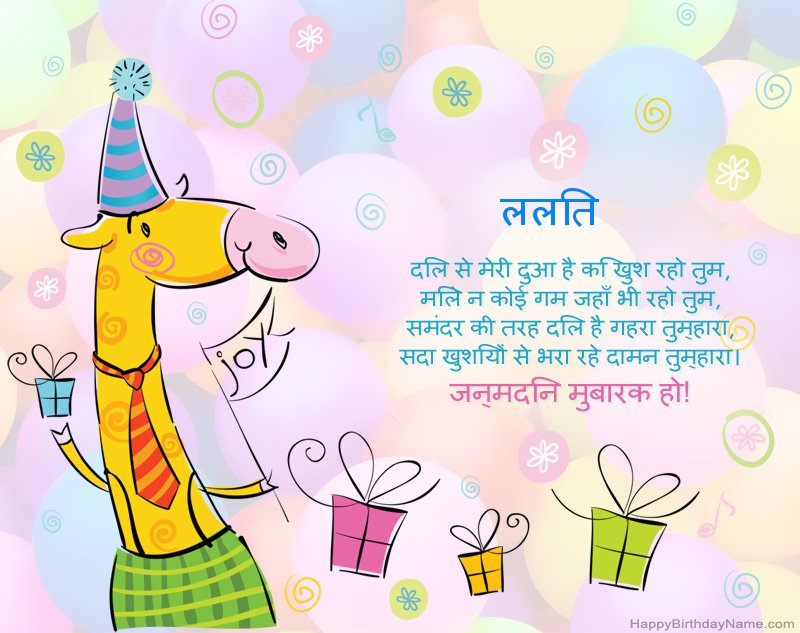 ललति
दलि से मेरी दुआ है कि खुश रहो तुम,
मलिे न कोई गम जहाँ भी रहो तुम,
समंदर की तरह दलि है गहरा तुम्हारा,
सदा खुशयिों से भरा रहे दामन तुम्हारा।
जन्मदनि मुबारक हो!
joy
HappyBirthdayName.com